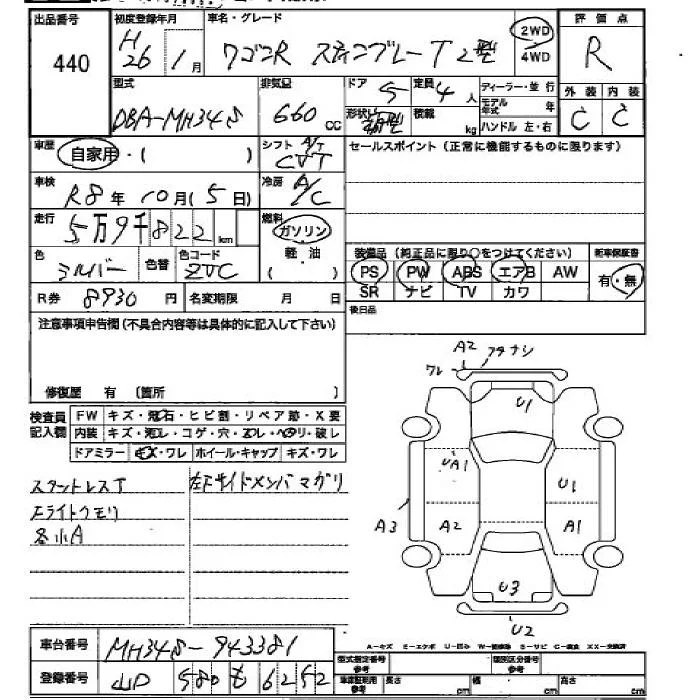 出品番号 初度登録年月 車名・グレード 評価点
440 H26年 1月 ワゴンR スティングレーT 2型 2WD 4WD R
型式 排気量 ドア 5 定員 4人 ディーラー・並行 外装 内装
DBA-MH34S 660cc 形状 積載 kg モデル年式 年 C C
ハンドル 左・右
車歴 自家用・( ) シフト A/T CVT セールスポイント(正常に機能するものに限ります)
車検 R8年 10月(5日) 冷房 A/C
走行 5万9千822km 燃料 ガソリン
色 シルバー 色替 色コード Z2C 軽・油 ( ) 装備品(純正品に限り○をつけてください) 新車保証書
PS PW ABS エアB AW 有・無
R券 8930円 名変期限 月 日 SR ナビ TV カワ
注意事項申告欄(不具合内容等は具体的に記入して下さい) 後日品
修復歴 有 〔箇所 〕
検査員記入欄 FW キズ・飛石・ヒビ割・リペア跡・X要
内装 キズ・汚レ・コゲ・穴・スレ・ヘタリ・破レ
ドアミラー キズ・ワレ ホイール・キャップ キズ・ワレ
スタットレスT 左下サイドメンバマガリ
エライトクモリ
各小A
A2 フタナシ
ワレ
U1
UA1 U1
A3 A2 A1
U3
U2
A-キズ E-エクボ U-凹ミ W-補修跡 S-サビ C-腐食 XX-交換済
車台番号 MH34S-943381
登録番号 山口 580 も 6252
型式指定番号 参考 類別区分番号 参考
車庫証明用 参考 長さ cm 幅 cm 高さ cm